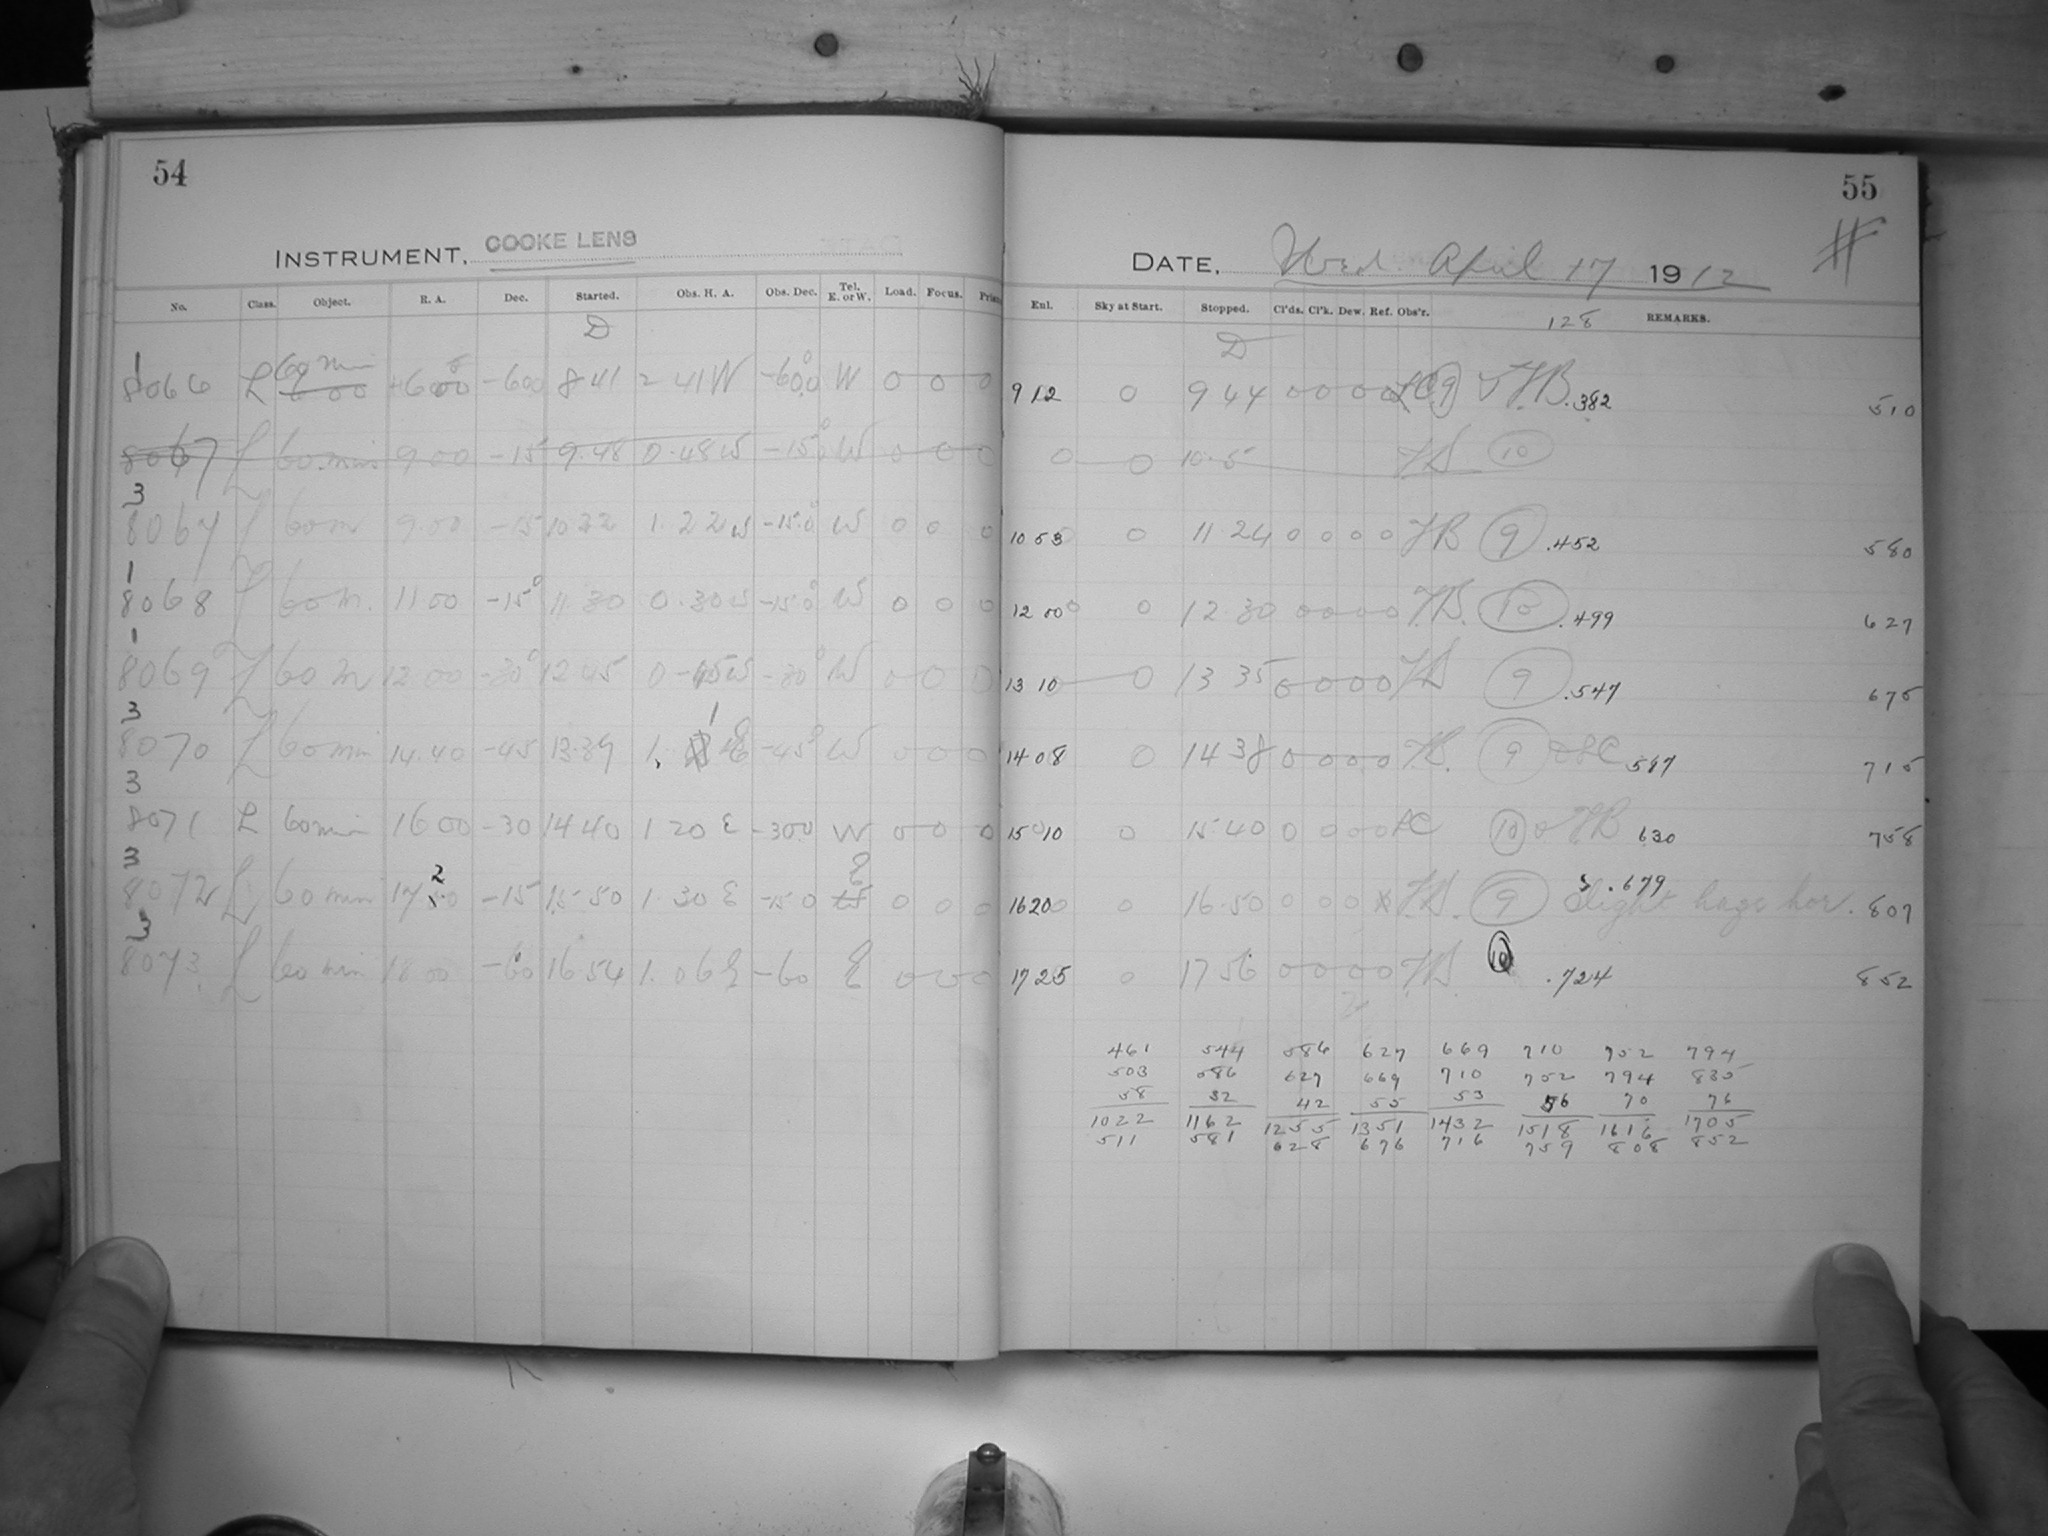 54
INSTRUMENT, COOKE LENS
No. Class. Object. R. A. Dec. Started. Obs. H. A. Obs. Dec. Tel. E. or W. Load. Focus.
D
1
8066 L 60 min +600 -600 841 2 41 W -60.0 W 0 0 0
8067 L 60 min 9 00 -15 9.48 0.48 W -15.0 W 0 0 0
3
8067 L 60 m 9.00 -15 10 22 1.22 W -15.0 W 0 0 0
1
8068 L 60 m. 11 00 -15° 11 30 0.30 W -15.0 W 0 0 0
1
8069 L 60 m 12 00 -30° 12 45 0-45 W -30° W 0 0 0
3
8070 L 60 min 14.40 -45 13.39 1. 1 E -45° W 0 0 0
3
8071 L 60 min 16 00 -30 14 40 1 20 E -300 W 0 0 0
3
8072 L 60 min 17 2 -15 15.50 1.30 E -15 0 E 0 0 0
3
8073 L 60 min 18 00 -60 16 54 1.06 E -60 E 0 0 0
55
DATE, Wed. April 17 1912 #
Eul. Sky at Start. Stopped. Cl'ds. Cl'k. Dew. Ref. Obs'r. 128 REMARKS.
D
9 12 0 9 44 0 0 0 0 LC 9 FB .382 510
0 0 10.5 10
10 53 0 11 24 0 0 0 0 FB 9 .452 580
12 00 0 12 30 0 0 0 0 FB. 10 .499 627
13 10 0 13 35 0 0 0 0 9 .547 675
14 08 0 14 38 0 0 0 0 9 587 715
15 10 0 15 40 0 0 0 0 LC 10 FB 630 758
16 20 0 16.50 0 0 0 x 9 .679 Slight haze hor. 807
17 25 0 17 56 0 0 0 0 10 .724 852
461 544 586 627 669 710 752 794
503 586 627 669 710 752 794 835
58 32 42 55 53 56 70 76
1022 1162 1255 1351 1432 1518 1616 1705
511 581 628 676 716 759 808 852